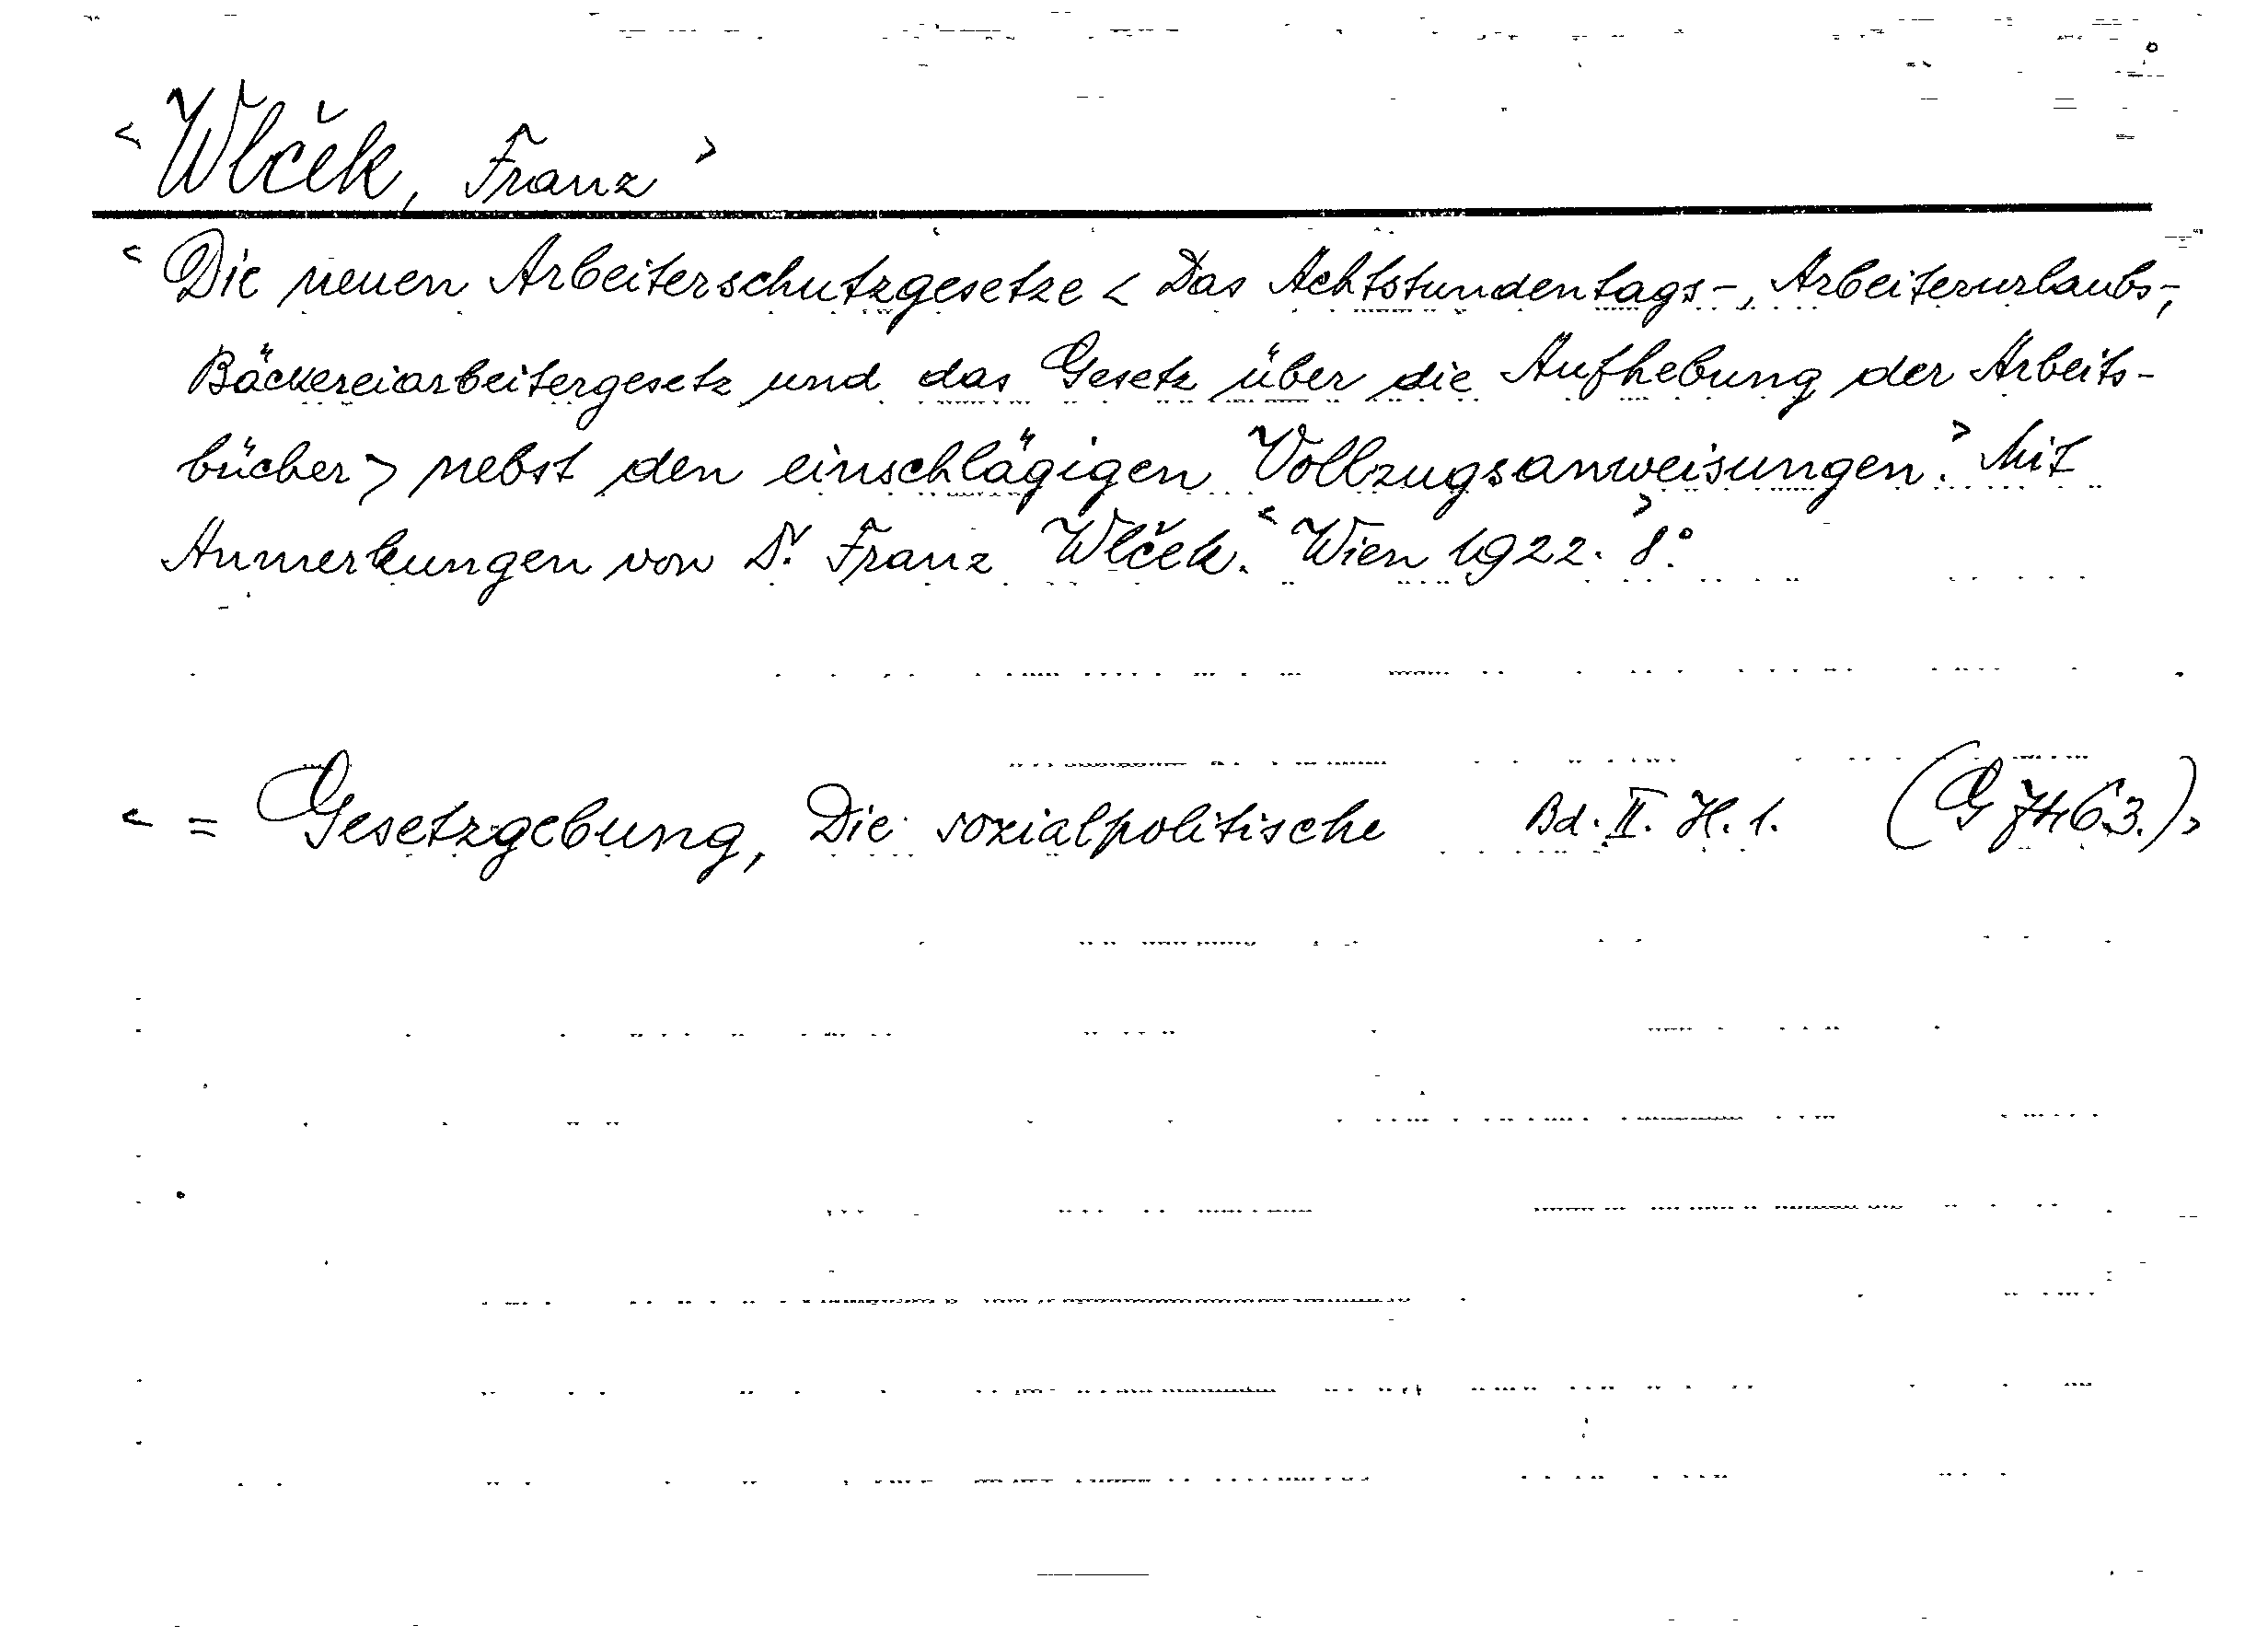 < Wlček, Franz >
< Die neuen Arbeiterschutzgesetze < Das Achtstundentags-, Arbeiterurlaubs-,
Bäckereiarbeitergesetz und das Gesetz über die Aufhebung der Arbeits-
bücher > nebst den einschlägigen Vollzugsanweisungen. > Mit
Anmerkungen von Dr. Franz Wlček. < Wien 1922. > 8°.
< = Gesetzgebung, Die sozialpolitische Bd. II. H. 1. (G 7463.) >